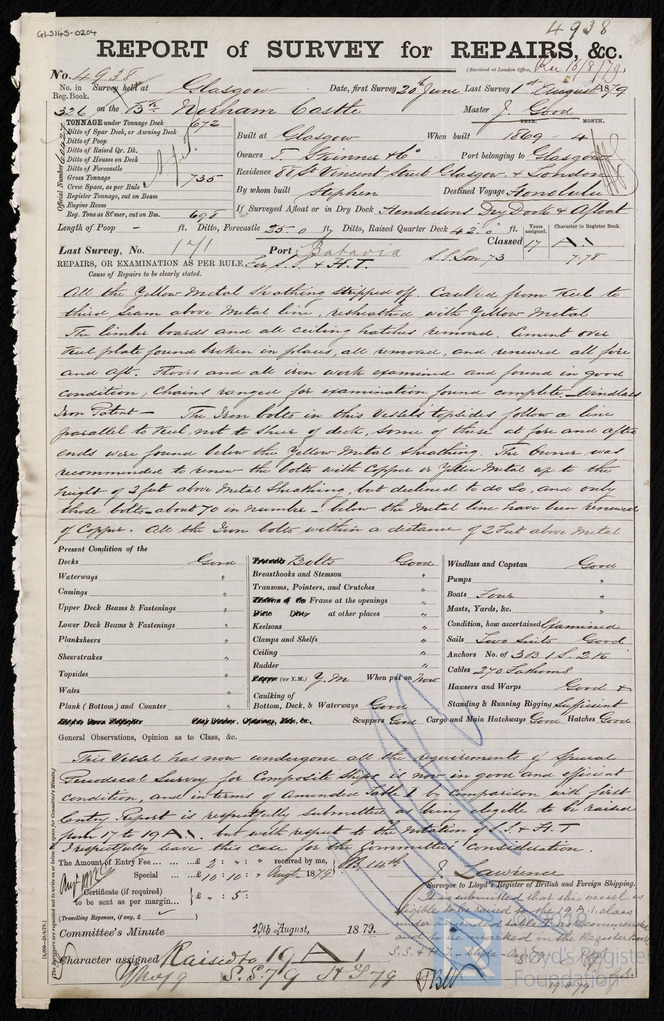 GLS145-0204
4938
REPORT of SURVEY for REPAIRS, &c.
(Received at London Office, Rec 18/8/79)
No. 4938
No. in Reg. Book. Survey held at Glasgow Date, first Survey 20th June Last Survey 1st August 1879
326 on the Durham Castle Master J. Good
TONNAGE under Tonnage Deck 672
Ditto of Spar Deck, or Awning Deck
Ditto of Poop
Ditto of Raised Qr. Dk.
Ditto of Houses on Deck
Ditto of Forecastle
Gross Tonnage 735
Crew Space, as per Rule
Register Tonnage, cut on Beam
Engine Room
Reg. Tons as St'mer, cut on Bm. 698
Official Number
YEAR. MONTH.
Built at Glasgow When built 1869 - 4
Owners T. Skinner & Co Port belonging to Glasgow
Residence 88 St Vincent Street Glasgow & London
By whom built Stephen Destined Voyage Honolulu
If Surveyed Afloat or in Dry Dock Hendersons Dry Dock & Afloat
Length of Poop - ft. Ditto, Forecastle 25.0 ft. Ditto, Raised Quarter Deck 42.0 ft.
Years assigned. Character in Register Book.
Last Survey, No. 171 Port Batavia Classed 17 A.1.
S.S. Lon 73 7.78
REPAIRS, OR EXAMINATION AS PER RULE, For S.S. & H.T.
Cause of Repairs to be clearly stated.
All the Yellow Metal Sheathing stripped off. Caulked from Keel to
third seam above Metal line, resheathed with Yellow Metal
The limber boards and all ceiling hatches removed. Cement over
Keel plate found broken in places, all removed, and renewed all fore
and aft. Floors and all iron work examined and found in good
condition; Chains ranged for examination found complete - Windlass
Iron Patent - The Iron bolts in this Vessels topsides follow a line
parallel to Keel, not to sheer of deck, some of those at fore and after
ends were found below the Yellow Metal Sheathing. The Owner was
recommended to renew the bolts with Copper or Yellow Metal up to the
height of 2 feet above Metal Sheathing, but declined to do so, and only
those bolts - about 70 in number - below the Metal line have been renewed
of Copper. All the Iron bolts within a distance of 2 feet above Metal
Present Condition of the
Decks Good
Waterways "
Comings "
Upper Deck Beams & Fastenings "
Lower Deck Beams & Fastenings "
Planksheers "
Sheerstrakes "
Topsides "
Wales "
Plank (Bottom) and Counter "
Bolts Good
Breasthooks and Stemson "
Transoms, Pointers, and Crutches "
Frame at the openings "
Ditto at other places "
Keelsons "
Clamps and Shelfs "
Ceiling "
Rudder "
(or Y.M.) Y.M When put on Now
Caulking of
Bottom, Deck, & Waterways Good
Windlass and Capstan Good
Pumps "
Boats Four "
Masts, Yards, &c. "
Condition, how ascertained Examined
Sails Two Suits Good
Anchors No. of 3 B. 1 S. 2 K
Cables 270 Fathoms
Hawsers and Warps Good &
Standing & Running Rigging Sufficient
Scuppers Good Cargo and Main Hatchways Good Hatches Good
General Observations, Opinion as to Class, &c.
This Vessel has now undergone all the requirements of Special
Periodical Survey for Composite Ships is now in good and efficient
condition, and in terms of Amended Table 1 by Comparison with first
Entry Report is respectfully submitted as being elegible to be raised
from 17 to 19 A.1. but with respect to the notation of S.S. & H.T
I respectfully leave this case for the Committees Consideration.
The Amount of Entry Fee ... £ 2 : " : " received by me,
Special ... £ 10 : 10 : " Augt. 1879
Certificate (if required) £ " : 5 :
to be sent as per margin
(Travelling Expenses, if any, £
J. Lawrence
Surveyor to Lloyd's Register of British and Foreign Shipping.
It is submitted that this vessel is
eligible to be raised to the 19 A.1. class
Committee's Minute 19th August, 1879.
Character assigned Raised to 19 A 1
S.S. 79 H T 79
19.8.79
© 2018
Lloyd's Register
Foundation